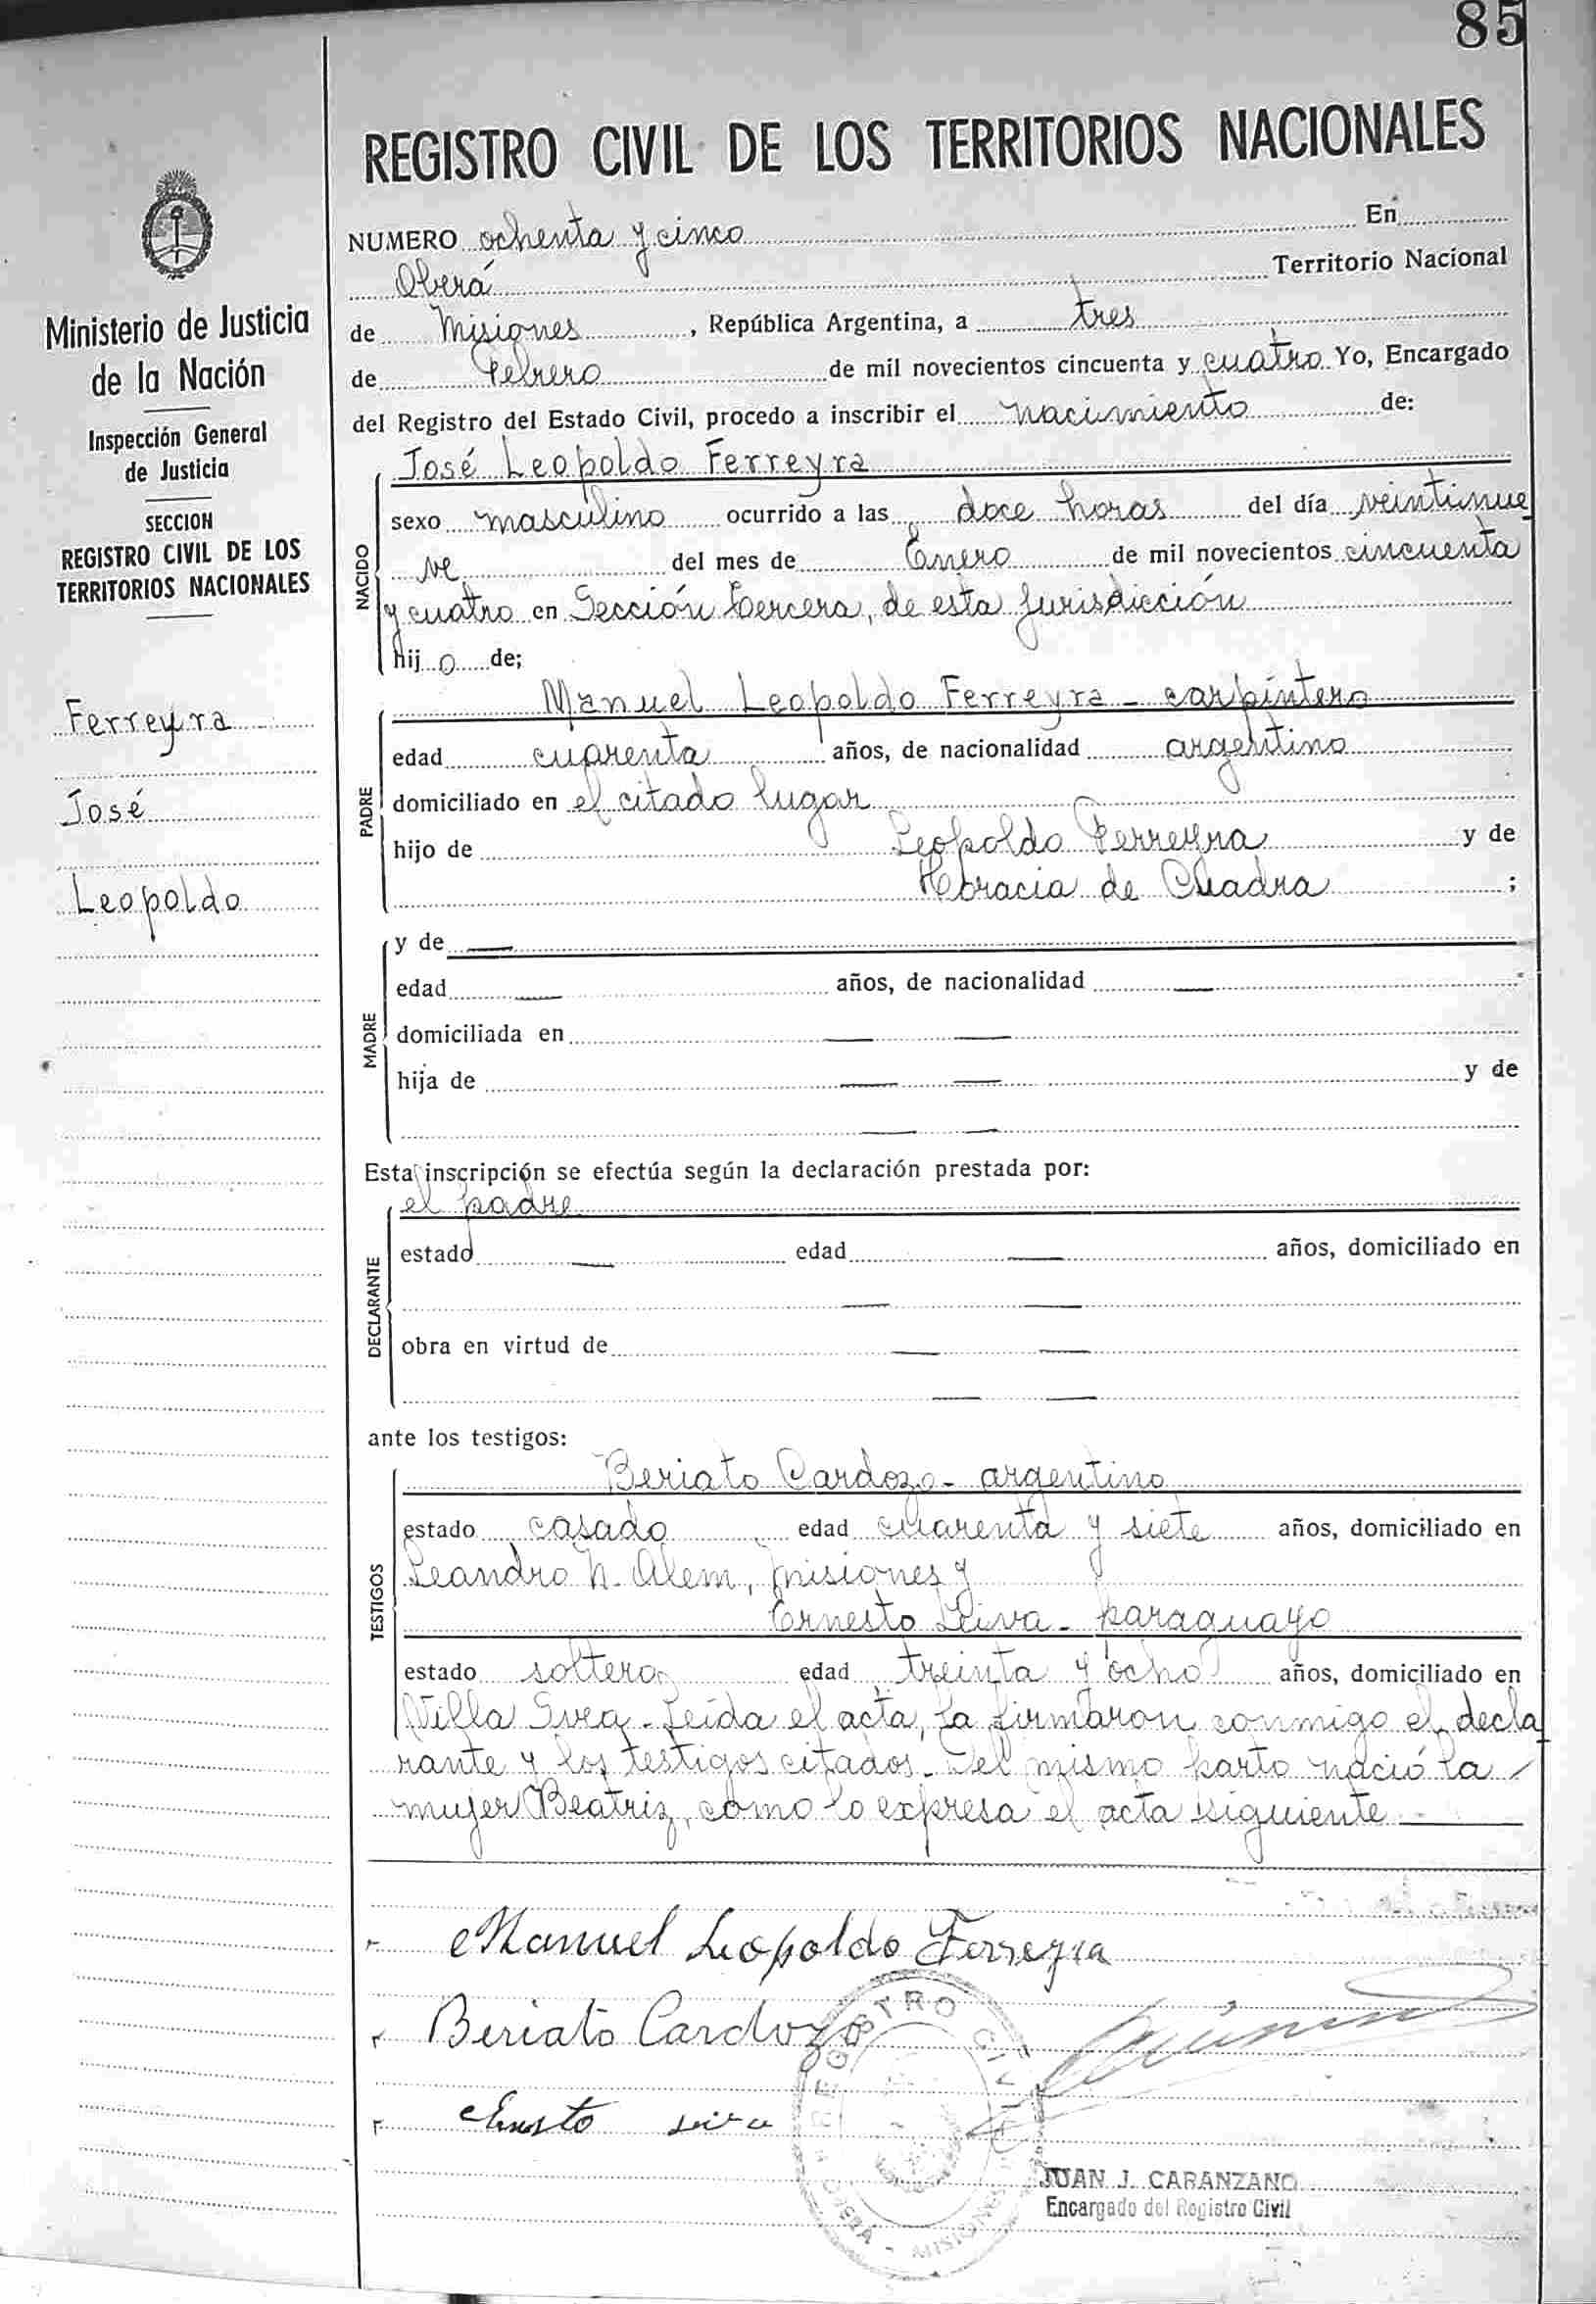 85
REGISTRO CIVIL DE LOS TERRITORIOS NACIONALES
Ministerio de Justicia
de la Nación
Inspección General
de Justicia
SECCION
REGISTRO CIVIL DE LOS
TERRITORIOS NACIONALES
Ferreyra
José
Leopoldo
NUMERO ochenta y cinco En
Oberá Territorio Nacional
de Misiones, República Argentina, a tres
de Febrero de mil novecientos cincuenta y cuatro Yo, Encargado
del Registro del Estado Civil, procedo a inscribir el nacimiento de:
NACIDO
José Leopoldo Ferreyra
sexo masculino ocurrido a las doce horas del día veintinue
ve del mes de Enero de mil novecientos cincuenta
y cuatro en Sección tercera, de esta jurisdicción
hijo de;
PADRE
Manuel Leopoldo Ferreyra - carpintero
edad cuarenta años, de nacionalidad argentino
domiciliado en el citado lugar
hijo de Leopoldo Ferreyra y de
Horacia de Cuadra ;
MADRE
y de —
edad — años, de nacionalidad —
domiciliada en — —
hija de — — y de
— —
Esta inscripción se efectúa según la declaración prestada por:
DECLARANTE
el padre
estado — edad — años, domiciliado en
— —
obra en virtud de — —
— —
ante los testigos:
TESTIGOS
Beriato Cardozo - argentino
estado casado edad cuarenta y siete años, domiciliado en
Leandro N. Alem, Misiones y
Ernesto Leiva - paraguayo
estado soltero edad treinta y ocho años, domiciliado en
Villa Svea - Leída el acta, la firmaron conmigo el decla
rante y los testigos citados. Del mismo parto nació la
mujer Beatriz, como lo expresa el acta siguiente —
Manuel Leopoldo Ferreyra
Beriato Cardozo
Ernesto Leiva
REGISTRO CIVIL
OBERA - MISIONES
JUAN J. CARANZANO
Encargado del Registro Civil